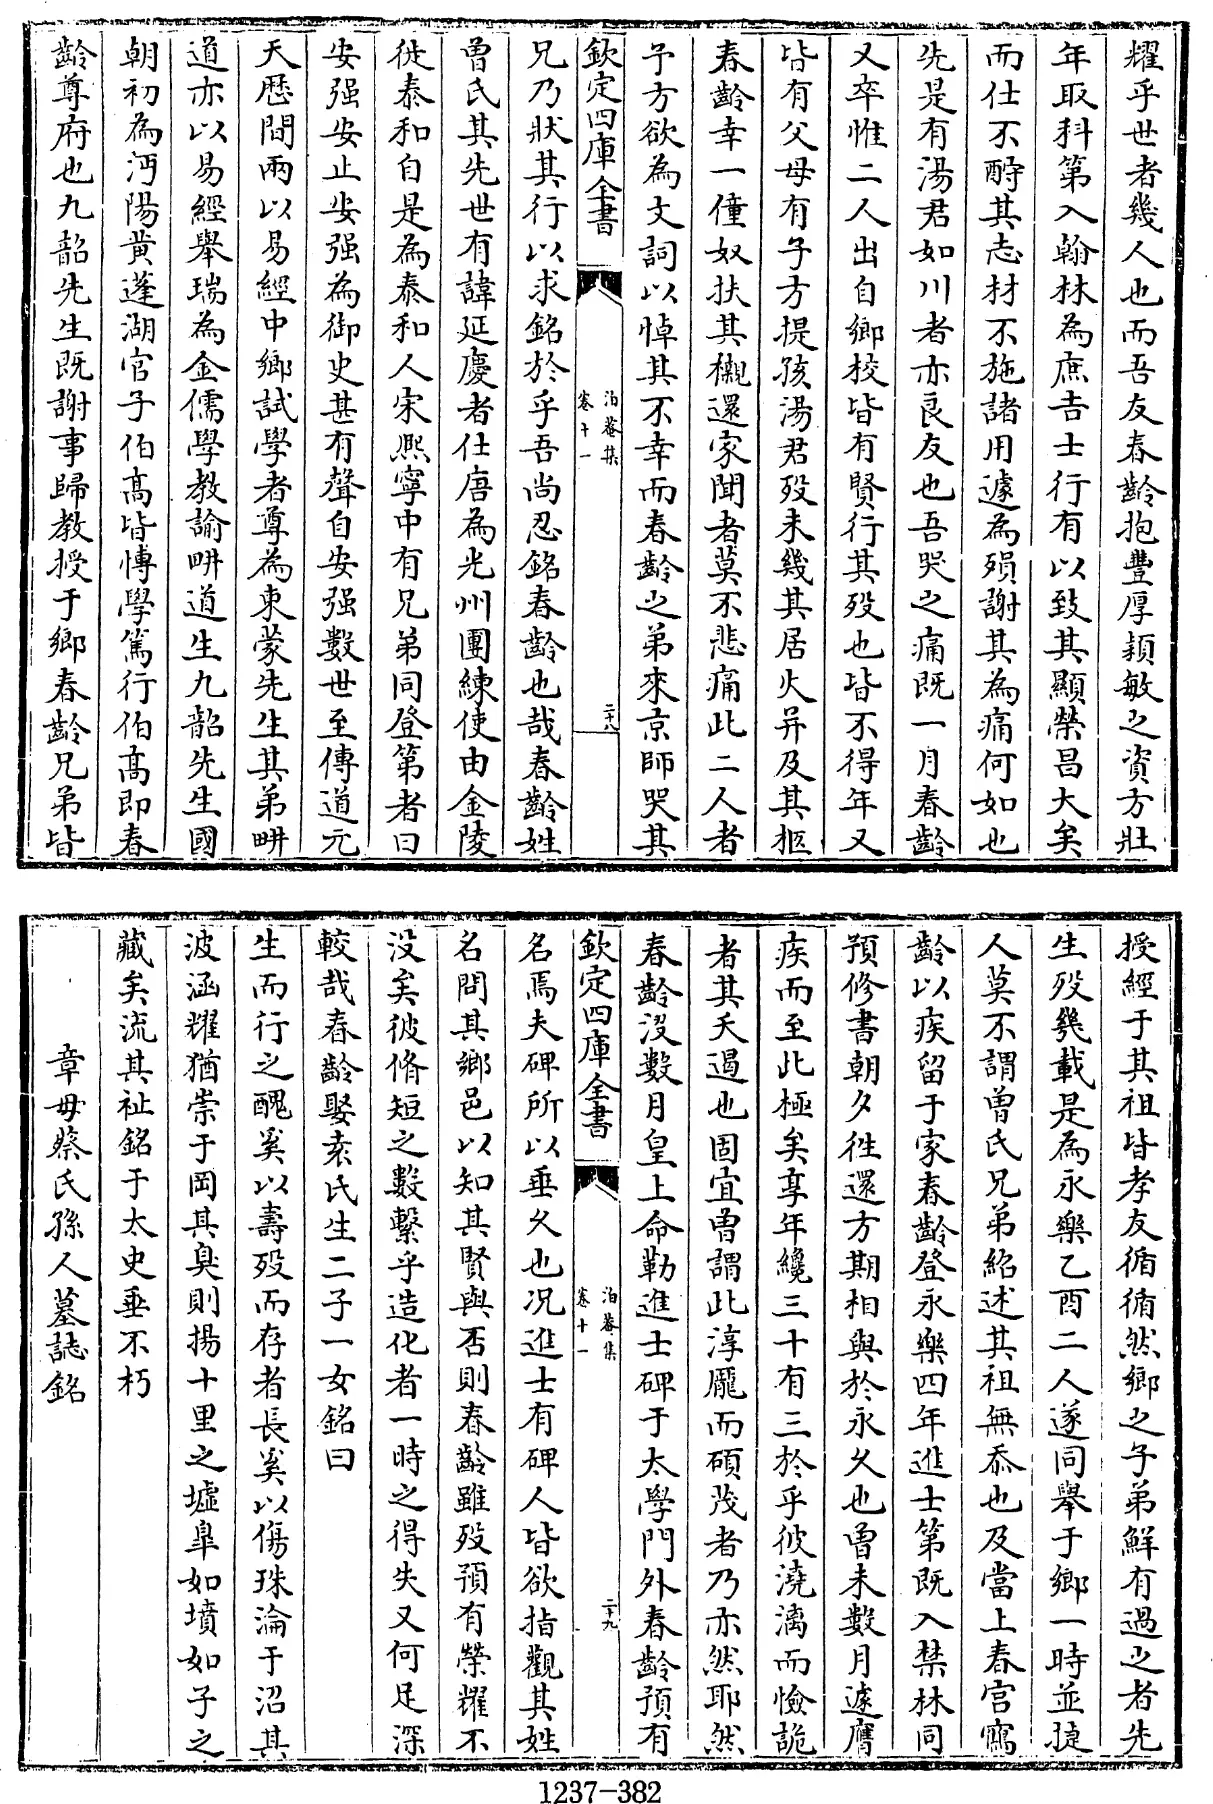 耀乎世者幾人也而吾友春齡抱豐厚穎敏之資方壯
年取科第入翰林為庶吉士行有以致其顯榮昌大矣
而仕不酧其志材不施諸用遽為殞謝其為痛何如也
先是有湯君如川者亦良友也吾哭之痛既一月春齡
又卒惟二人出自鄉校皆有賢行其歿也皆不得年又
皆有父母有子方提孩湯君歿未幾其居火并及其柩
春齡幸一僮奴扶其櫬還家聞者莫不悲痛此二人者
予方欲為文詞以悼其不幸而春齡之弟來京師哭其
欽定四庫全書
泊菴集
卷十一
二十八
兄乃狀其行以求銘於乎吾尚忍銘春齡也哉春齡姓
曾氏其先世有諱延慶者仕唐為光州團練使由金陵
徙泰和自是為泰和人宋熈寧中有兄弟同登第者曰
安强安止安强為御史甚有聲自安强數世至傳道元
天歷間兩以易經中鄉試學者尊為東蒙先生其弟畊
道亦以易經舉瑞為金儒學教諭畊道生九韶先生國
朝初為沔陽黄蓬湖官子伯髙皆博學篤行伯髙即春
齡尊府也九韶先生既謝事歸教授于鄉春齡兄弟皆
授經于其祖皆孝友循循然鄉之子弟鮮有過之者先
生歿幾載是為永樂乙酉二人遂同舉于鄉一時並捷
人莫不謂曾氏兄弟紹述其祖無忝也及當上春官鶱
齡以疾留于家春齡登永樂四年進士第既入禁林同
預修書朝夕徃還方期相與於永久也曾未數月遽膺
疾而至此極矣享年纔三十有三於乎彼澆漓而憸詭
者其夭遏也固宜曽謂此淳龎而碩茂者乃亦然耶然
春齡沒數月皇上命勒進士碑于太學門外春齡預有
欽定四庫全書
泊菴集
卷十一
二十九
名焉夫碑所以垂久也况進士有碑人皆欲指觀其姓
名問其鄉邑以知其賢與否則春齡雖歿預有榮耀不
没矣彼脩短之數繫乎造化者一時之得失又何足深
較哉春齡娶袁氏生二子一女銘曰
生而行之醜奚以壽歿而存者長奚以傷珠淪于沼其
波涵耀猶崇于岡其臭則揚十里之墟臯如墳如子之
藏矣流其祉銘于太史垂不朽
章母蔡氏孺人墓誌銘
1237-382